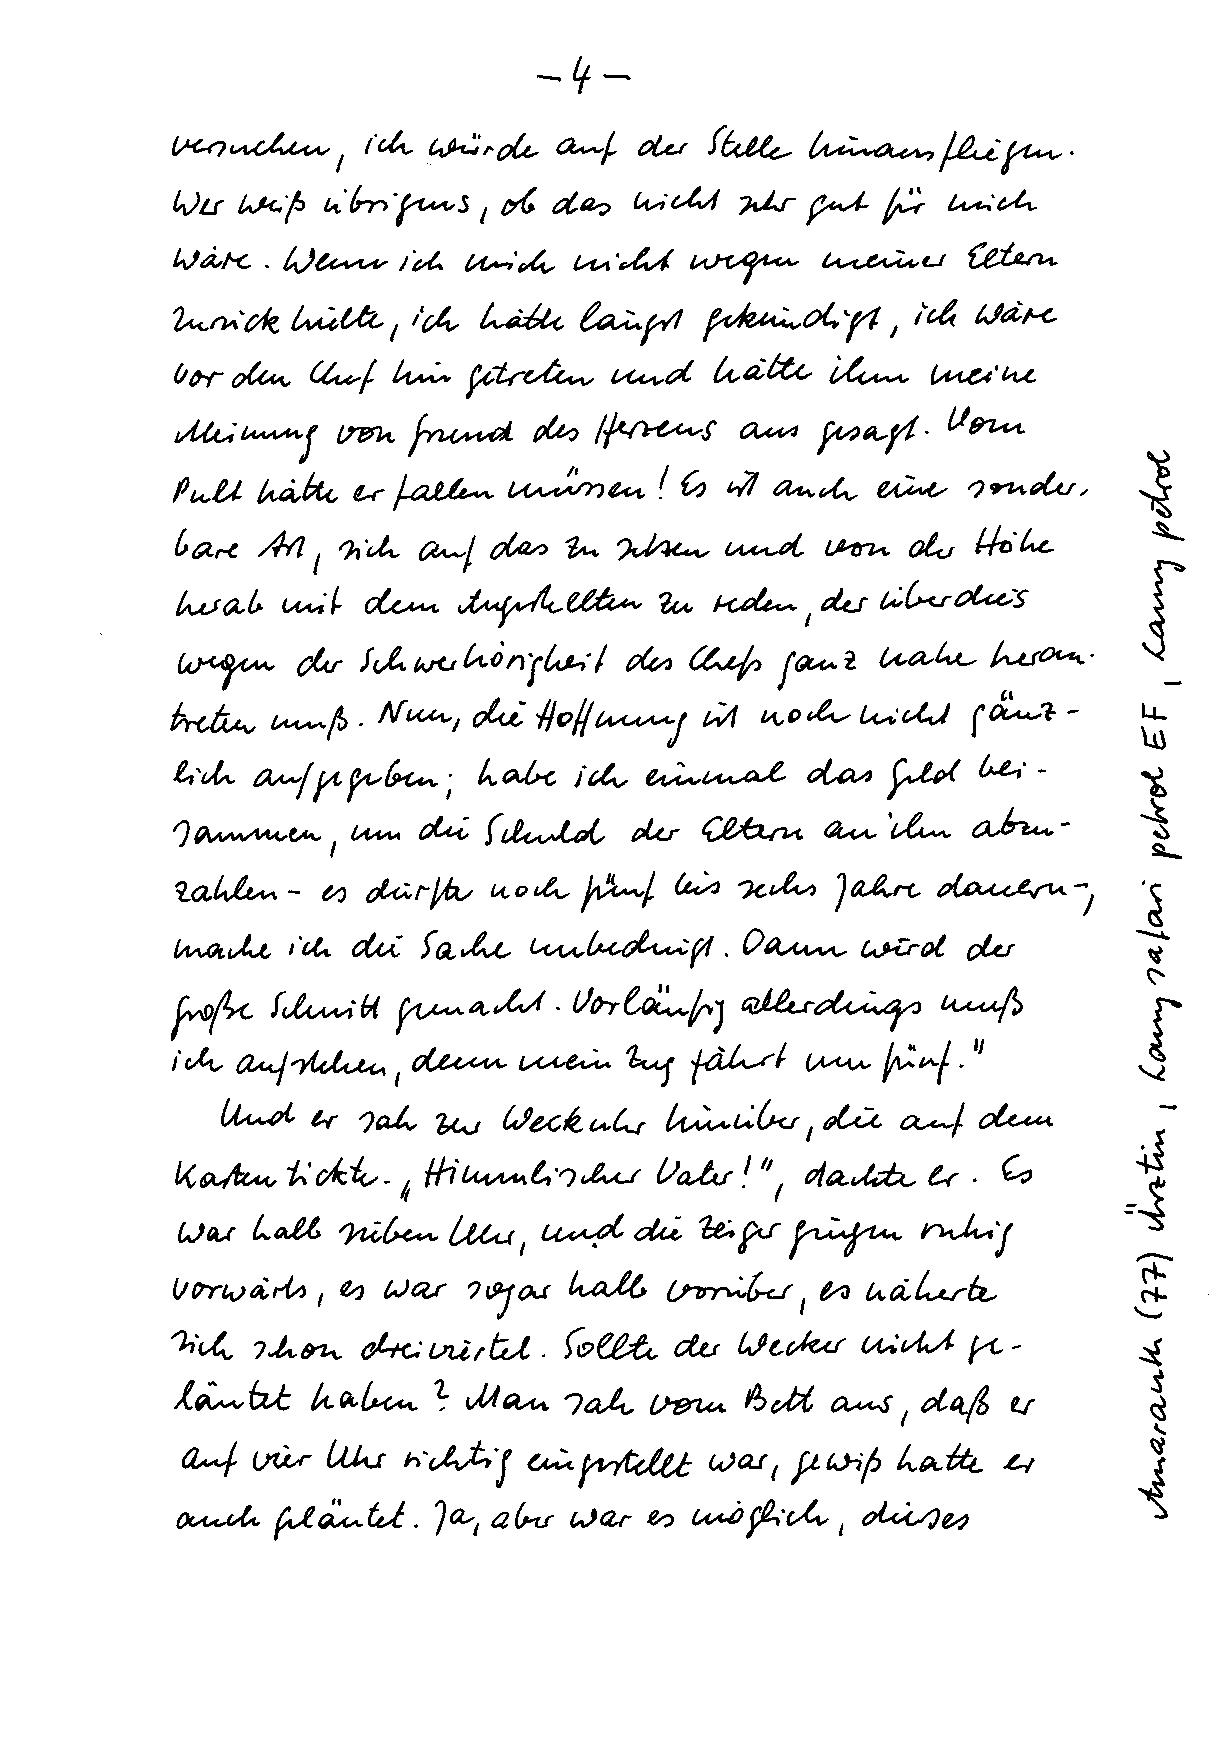 – 4 –
versuchen, ich würde auf der Stelle hinausfliegen.
Wer weiß übrigens, ob das nicht sehr gut für mich
wäre. Wenn ich mich nicht wegen meiner Eltern
zurückhielte, ich hätte längst gekündigt, ich wäre
vor den Chef hin getreten und hätte ihm meine
Meinung von Grund des Herzens aus gesagt. Vom
Pult hätte er fallen müssen! Es ist auch eine sonder-
bare Art, sich auf das zu setzen und von der Höhe
herab mit dem Angestellten zu reden, der überdies
wegen der Schwerhörigkeit des Chefs ganz nahe heran-
treten muß. Nun, die Hoffnung ist noch nicht gänz-
lich aufgegeben; habe ich einmal das Geld bei-
sammen, um die Schuld der Eltern an ihn abzu-
zahlen – es dürfte noch fünf bis sechs Jahre dauern –,
mache ich die Sache unbedingt. Dann wird der
große Schnitt gemacht. Vorläufig allerdings muß
ich aufstehen, denn mein Zug fährt um fünf."
Und er sah zur Weckuhr hinüber, die auf dem
Kasten tickte. „Himmlischer Vater!", dachte er. Es
war halb sieben Uhr, und die Zeiger gingen ruhig
vorwärts, es war sogar halb vorüber, es näherte
sich schon dreiviertel. Sollte der Wecker nicht ge-
läutet haben? Man sah vom Bett aus, daß er
auf vier Uhr richtig eingestellt war, gewiß hatte er
auch geläutet. Ja, aber war es möglich, dieses
Amaranth (77) ürztin, Lamy safari petrol EF, Lamy petrol